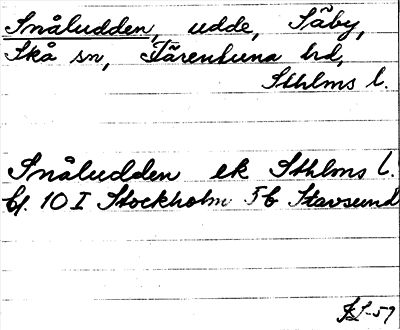 Snåludden, udde, Säby,
Skå sn, Färentuna hd,
Sthlms l.
Snåludden ek Sthlms l.
bl. 10 I Stockholm 5b Stavsund
-59